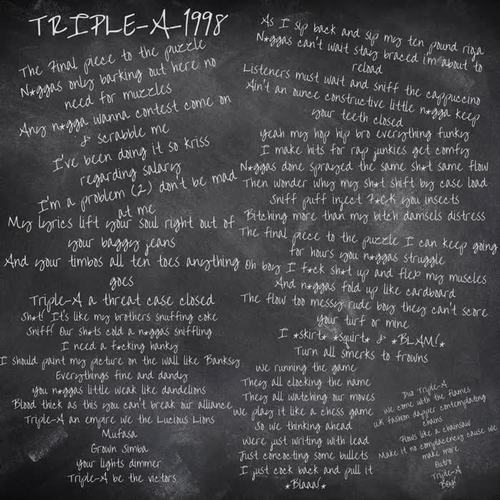 TRIPLE-A-1998
The Final piece to the puzzle
N*ggas only barking out here no
need for muzzles
Any n*gga wanna contest come on
& scrabble me
I've been doing it so kriss
regarding salary
I'm a problem (2) don't be mad
at me
My lyrics lift your soul right out of
your baggy jeans
And your timbos all ten toes anything
goes
Triple-A a threat case closed
Sh*t! It's like my brothers snuffing coke
Sniff! Our sh*ts cold a n*ggas sniffling
I need a f*cking hanky
I should paint my picture on the wall like Banksy
Everythings fine and dandy
You n*ggas little weak like dandelions
Blood thick as this you can't break our alliance
Triple-A an empire we the Lucious Lions
Mufasa
Grown Simba
Your lights dimmer
Triple-A be the victors
As I sip back and sip my ten pound rioja
N*ggas can't wait stay braced im about to
reload
Listeners must wait and sniff the cappuccino
Ain't an ounce constructive little n*gga keep
your teeth closed
Yeah my hip hip bro everything funky
I make hits for rap junkies get comfy
N*ggas done sprayed the same sh*t same flow
Then wonder why my sh*t shift by case load
Sniff puff inject F*CK you insects
Bitching more than my bitch damsels distress
The final piece to the puzzle I can keep going
for hours you n*ggas struggle
Oh boy I f*ck sh*t up and flex my muscles
And n*ggas fold up like cardboard
The flow too messy rude boy they can't score
your turf or mine
I *skirt* *squirt* & *BLAM!*
Turn all smerks to frowns
We running the game
They all clocking the name
They all watching our moves
We play it like a chess game
So we thinking ahead
Were just writing with lead
Just concocting some bullets
I just cock back and pull it
*Blaaa!*
Duo Triple-A
We come with the flames
UK fashion dapper contemplating
chains
Flows like a chainsaw
Make it no complacency cause we
make more
Outro
Triple-A